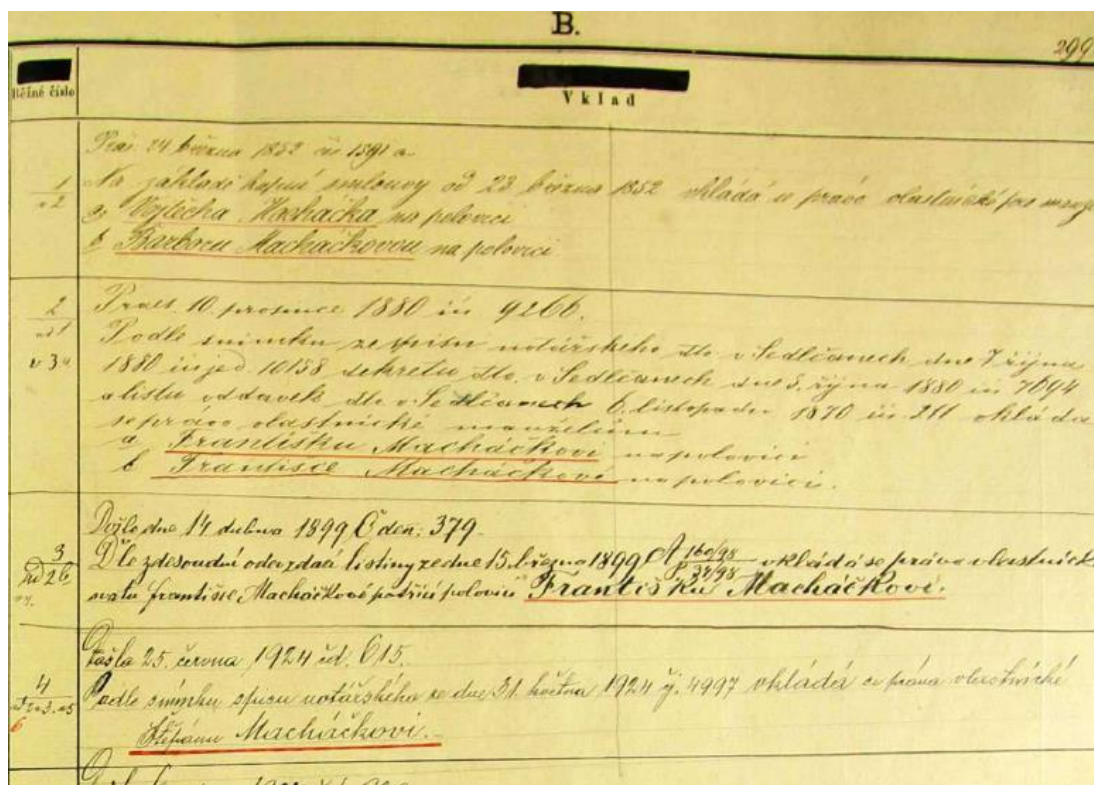 B.
299
Běžné číslo
Vklad
Praes. 24 března 1852 čís 1591 a.
1
Na základě kupní smlouvy od 23 března 1852 vkládá se právo vlastnické pro
a) Vojtěcha Macháčka na polovici
b Barboru Macháčkovou na polovici
2
Praes. 10. prosince 1880 čís 9266.
Podle snímku ze spisu notářského dto. v Sedlčanech dne 7 října
1880 čís jed 10158 dekretu dto. v Sedlčanech dne 3. října 1880 čís 7694
a listu oddavek dto v Sedlčanech 6. listopadu 1870 čís 211 vkládá
se právo vlastnické manželům
a Františku Macháčkovi na polovici
b Františce Macháčkové na polovici.
Došlo dne 14 dubna 1899 Č den. 379.
3
Dle zdesoudní odevzdací listiny ze dne 15. března 1899 A 160/98 vkládá se právo vlastnick
P 38/98
na tu Františce Macháčkové patřící polovici Františku Macháčkovi.
Došla 25. června 1924 čd. 615.
4
Podle snímku spisu notářského ze dne 31. května 1924 čj. 4997 vkládá se právo vlastnické
6
Štěpánu Macháčkovi.